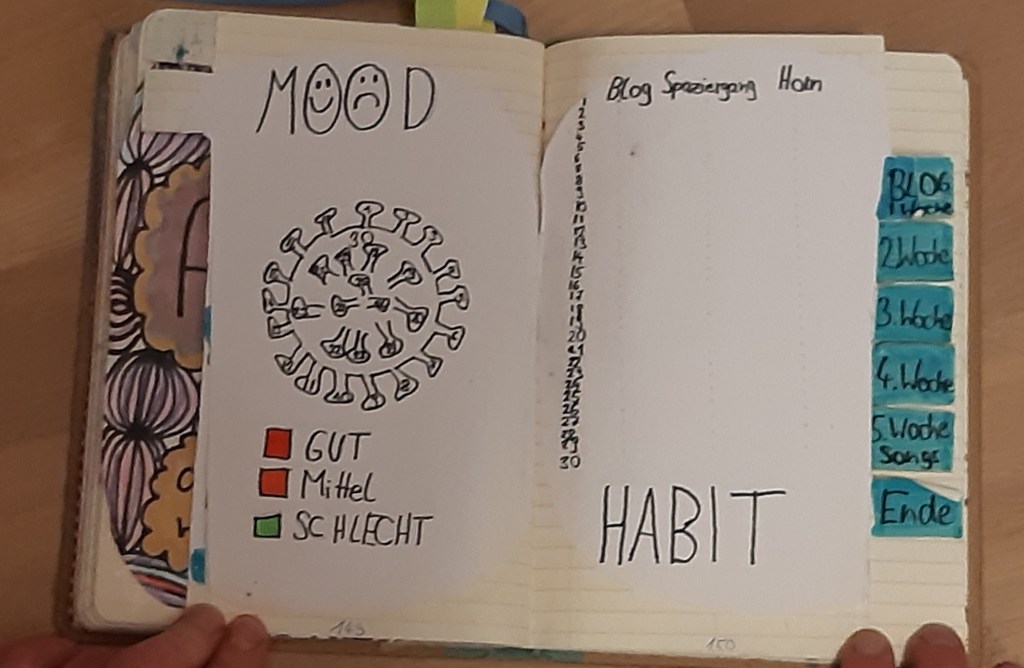 MOOD
30
GUT
Mittel
SCHLECHT
149
Blog Spaziergang Horn
1
2
3
4
5
6
7
8
9
10
11
12
13
14
15
16
17
18
19
20
21
22
23
24
25
26
27
28
29
30
HABIT
150
BLOG
1 Woche
2.Woche
3.Woche
4.Woche
5.Woche
Songs
Ende